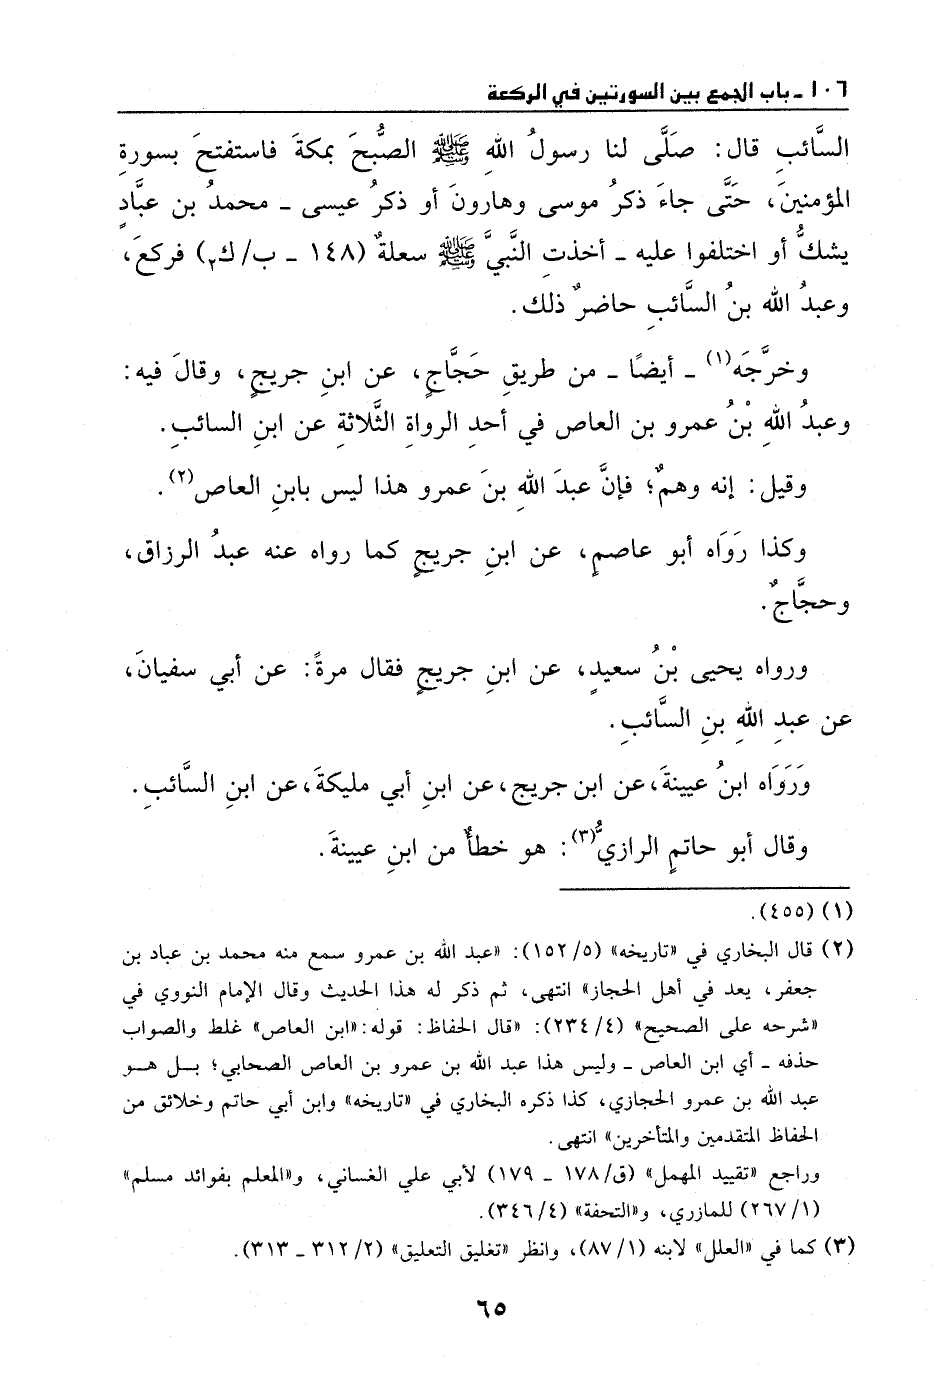 ١٠٦ - باب الجمع بين السورتين في الركعة
السَّائبِ قال: صَلَّى لنا رسولُ اللهِ ﷺ الصُّبحَ بمكةَ فاستفتحَ بسورةِ
المؤمنينَ، حَتَّى جاءَ ذكرُ موسى وهارونَ أو ذكرُ عيسى - محمدُ بن عبَّادٍ
يشكُّ أو اختلفوا عليه - أخذتِ النَّبيَّ ﷺ سعلةٌ (١٤٨ - ب/ك٢) فركعَ،
وعبدُ الله بنُ السَّائبِ حاضرٌ ذلك.
وخرَّجَه(١) - أيضًا - من طريقِ حَجَّاجٍ، عن ابنِ جريجٍ، وقالَ فيه:
وعبدُ اللهِ بْنُ عمرو بن العاص في أحدِ الرواةِ الثَّلاثةِ عن ابنِ السائبِ.
وقيل: إنه وهمٌ؛ فإنَّ عبدَ اللهِ بنَ عمرو هذا ليس بابنِ العاص(٢).
وكذا رَوَاه أبو عاصمٍ، عن ابنِ جريجٍ كما رواه عنه عبدُ الرزاق،
وحجَّاجٌ.
ورواه يحيى بْنُ سعيدٍ، عن ابنِ جريجٍ فقال مرةً: عن أبي سفيانَ،
عن عبدِ اللهِ بنِ السَّائبِ.
وَرَوَاه ابنُ عيينةَ، عن ابن جريج، عن ابنِ أبي مليكةَ، عن ابنِ السَّائبِ.
وقال أبو حاتمٍ الرازيُّ(٣): هو خطأٌ من ابنِ عيينةَ.
(١) (٤٥٥).
(٢) قال البخاري في «تاريخه» (١٥٢/٥): «عبد الله بن عمرو سمع منه محمد بن عباد بن
جعفر، يعد في أهل الحجاز» انتهى، ثم ذكر له هذا الحديث وقال الإمام النووي في
«شرحه على الصحيح» (٢٣٤/٤): «قال الحفاظ: قوله: «ابن العاص» غلط والصواب
حذفه - أي ابن العاص - وليس هذا عبد الله بن عمرو بن العاص الصحابي؛ بل هو
عبد الله بن عمرو الحجازي، كذا ذكره البخاري في «تاريخه» وابن أبي حاتم وخلائق من
الحفاظ المتقدمين والمتأخرين» انتهى.
وراجع «تقييد المهمل» (ق/١٧٨ - ١٧٩) لأبي علي الغساني، و«المعلم بفوائد مسلم»
(٢٦٧/١) للمازري، و«التحفة» (٣٤٦/٤).
(٣) كما في «العلل» لابنه (٨٧/١)، وانظر «تغليق التعليق» (٣١٢/٢ - ٣١٣).
٦٥